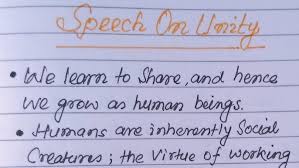 Speech On Unity
• We learn to Share, and hence
we grow as human beings.
• Humans are inherently Social
Creatures; the virtue of working